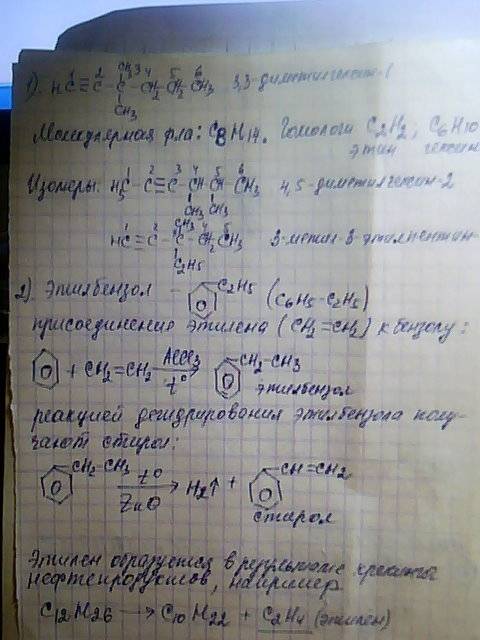 1). HC≡C-C-CH2-CH2-CH3 3,3-диметилгексин-1
CH3
CH3
Молекулярная ф-ла: C8H14. Гомологи C2H2; C6H10
этин гексин
Изомеры: H3C-C≡C-CH-CH-CH3 4,5-диметилгексин-2
CH3 CH3
HC≡C-C-CH2-CH3 3-метил-3-этилпентин-
CH3
C2H5
2) Этилбензол - C2H5 (C6H5-C2H5)
присоединение этилена (CH2=CH2) к бензолу:
+ CH2=CH2 AlCl3 t° → CH2-CH3
этилбензол
реакцией дегидрирования этилбензола полу-
чают стирол:
CH2-CH3 t° ZnO → H2↑ + CH=CH2
стирол
Этилен образуется в результате крекинга
нефтепродуктов, например
C12H26 → C10H22 + C2H4 (этилен)